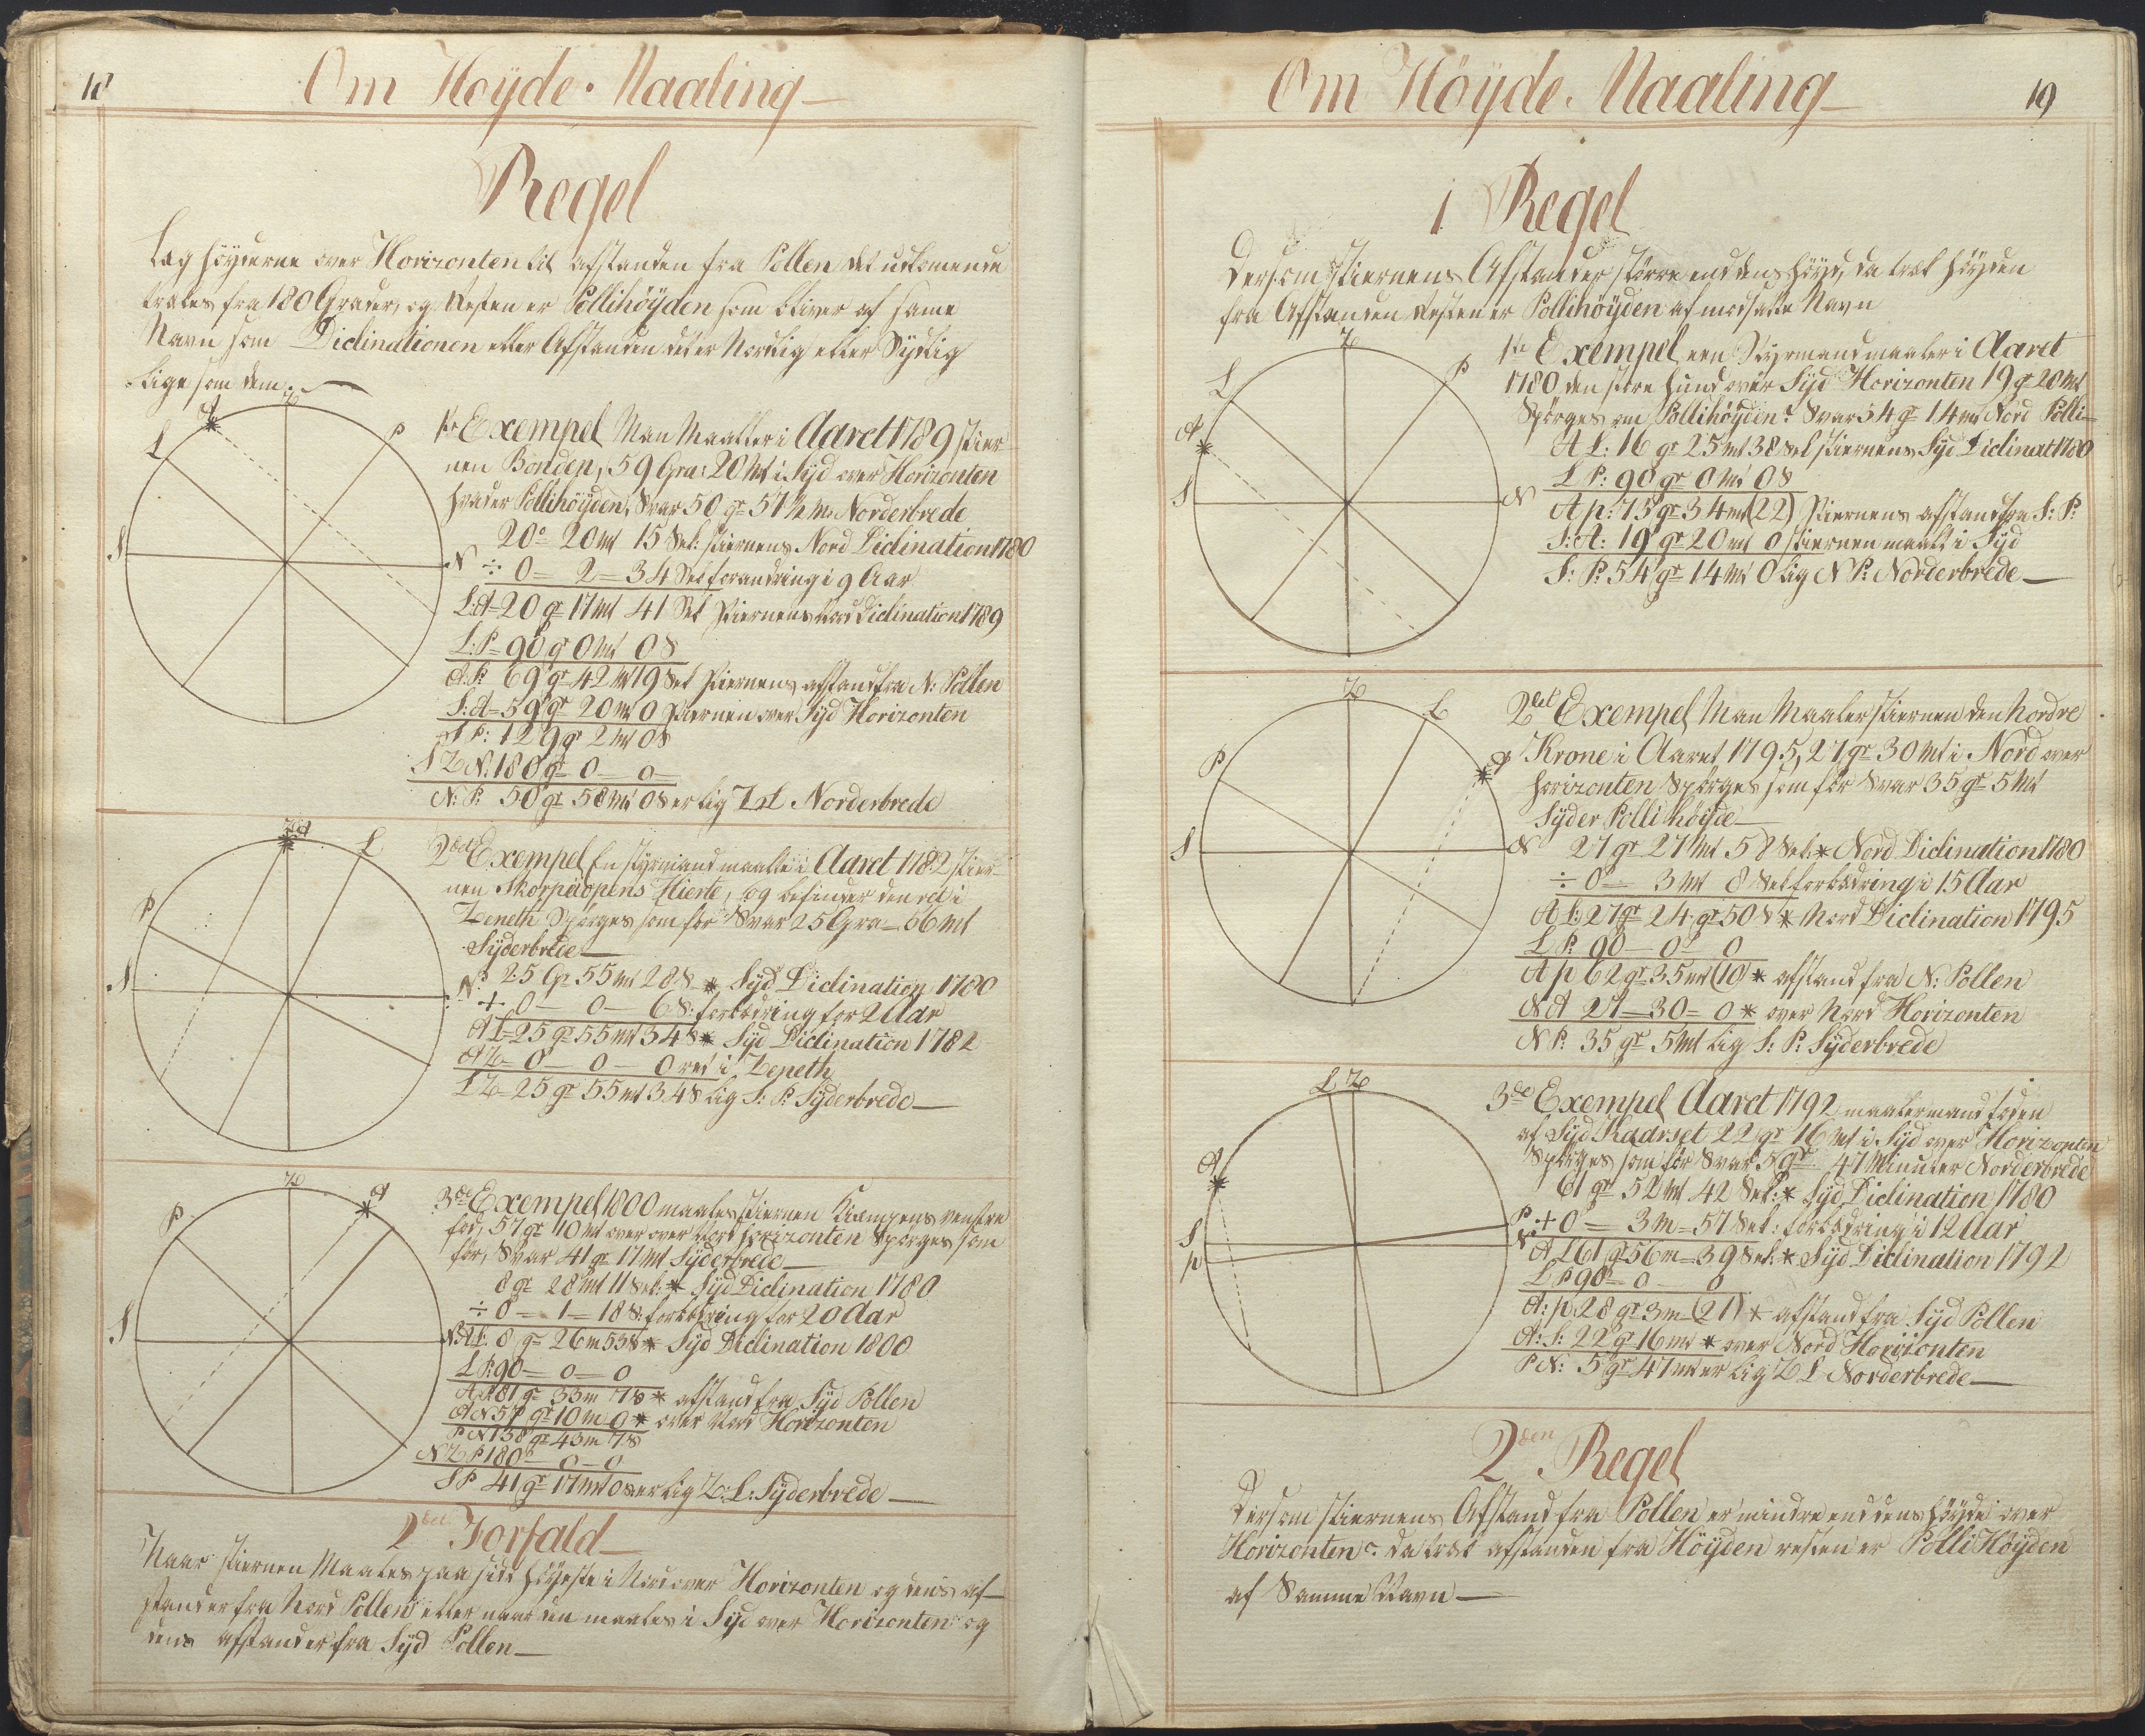 18
Om Höyde. Maaling
Regel
Læg höyderne over Horizonten til afstanden fra Pollen det udkomende
trækes fra 180 Grader, og Resten er Pollihöyden som bliver af same
Navn som Diclinationen eller Afstanden det er Nordlig eller Sydlig
Lige som dem.
Z
A
L
P
S
N
1te Exempel Man Maaller i Aaret 1789 stier
nen Bonden, 59 Gra: 20 Mt i Syd over Horizonten
hvad er Pollihöyden, Svar 50 gr 57 ½ Mt Norderbrede
20° 20 mt 15 Sek: stiernens Nord Diclination 1780
÷ 0 = 2 = 34 Sek forandring i 9 Aar
L:A = 20 gr 17 mt 41 Sek Stiernens Nord Diclination 1789
L:P = 90 gr 0 mt 0 S
A:P: 69 gr 42 mt 19 Sek stiernens afstand fra N: Pollen
S:A = 59 gr 20 mt 0 stiernen over Syd Horizonten
S P: 129 gr 2 mt 0 S
S Z N: 180 gr 0 — 0 —
N: P: 50 gr 58 mt 0 S er lig Z L Norderbrede
Z A
L
P
S
N
2det Exempel En styrmand maalte i Aaret 1782 stier-
nen Skorpiopens Hierte, og befinder den ret i
Zeneth Spörges som för Svar 25 Gra — 56 Mt
Syderbrede
25 Gr 55 mt 28 S * Syd Diclination 1780
+ 0 — 0 — 6 S: forbedring for 2 Aar
A L = 25 gr 55 mt 34 S * Syd Diclination 1782
A Z = 0 — 0 — 0 ret i Zeneth
L Z = 25 gr 55 mt 34 S Lig S: P: Syderbrede
Z
A
P
S
N
3de Exempel 1800 maales stiernen Kiæmpens venstre
fod, 57 gr 10 mt over over Nord horizonten Spörges som
för, Svar 41 gr 17 mt Syderbrede
8 gr 28 mt 11 Sek: * Syd Diclination 1780
÷ 0 — 1 = 18 S: forbedring for 20 Aar
A L: 8 gr 26 m 53 S * Syd Diclination 1800
L P: 90 = 0 = 0
A P 81 gr 33 m 7 S * afstand fra Syd Pollen
A N 57 gr 10 m 0 * over Nord Horizonten
P N 138 gr 43 m 7 S
N Z P 180° — 0 — 0
S P 41 gr 17 mt 0 S er Lig Z: L: Syderbrede
2den Forfald
Naar stiernen Maales paa sidt höyeste i Nord over Horizonten og dens af-
stand er fra Nord Pollen eller naar den maales i Syd over Horizonten og
dens afstand er fra Syd Pollen
Om Höyde. Maaling
19
1 Regel
Dersom Stiernens Afstand er större end dens höyd, da træk höyden
fra Afstanden Resten er Pollihöyden af modsatte Navn
Z
L
P
A
S
N
1te Exempel een Styrmand maaler i Aaret
1780 den store hund over Syd Horizonten 19 gr 20 Mt
Spörges om Pollihöyden? Svar 54 gr 14 mt Nord Polli-
A L: 16 gr 25 mt 38 Sek stiernens Syd Diclinat 1780
L P: 90 gr 0 mt 0 S
A p: 73 gr 34 mt (22) Stiernens afstand fra S: P:
S: A: 19 gr 20 mt 0 stiernen maalt i Syd
S: P: 54 gr 14 mt 0 Lig N P: Norderbrede
Z
L
P
A
S
N
2det Exempel Man Maaler stiernen den Nordre
Krone i Aaret 1795, 27 gr 30 Mt i Nord over
horizonten Spörges som för Svar 35 gr 5 Mt
Syder Polli höyde
27 gr 27 Mt 58 Sek: * Nord Diclination 1780
÷ 0 = 3 mt 8 Sek forbedring i 15 Aar
A L: 27 gr 24 gr 50 S * Nord Diclination 1795
L P: 90 — 0 — 0
A p 62 gr 35 mt (10) * afstand fra N: Pollen
N A 27 — 30 = 0 * over Nord Horizonten
N P: 35 gr 5 Mt Lig S: P: Syderbrede
L Z
A
S
p
P
N
3de Exempel Aaret 1792 maaler mand foden
af Syd Kaarset 22 gr 16 Mt i Syd over Horizonten
Spörges som för Svar 5 gr 47 Minuter Norderbrede
61 gr 52 Mt 42 Sek: * Syd Diclination 1780
+ 0 = 3 M = 57 Sek: forbedring i 12 Aar
A L 61 gr 56 m = 39 Sek: * Syd Diclination 1792
L P 90 = 0 — 0
A: p: 28 gr 3 m = (21) * afstand fra Syd Pollen
A: S: 22 gr 16 mt * over Nord Horizonten
P N: 5 gr 47 mt er Lig Z L Norderbrede
2den Regel
Dersom stiernens Afstand fra Pollen er mindre end dens höyde over
Horizonten. da træk afstanden fra Höyden resten er Polli Höyden
af Samme Navn